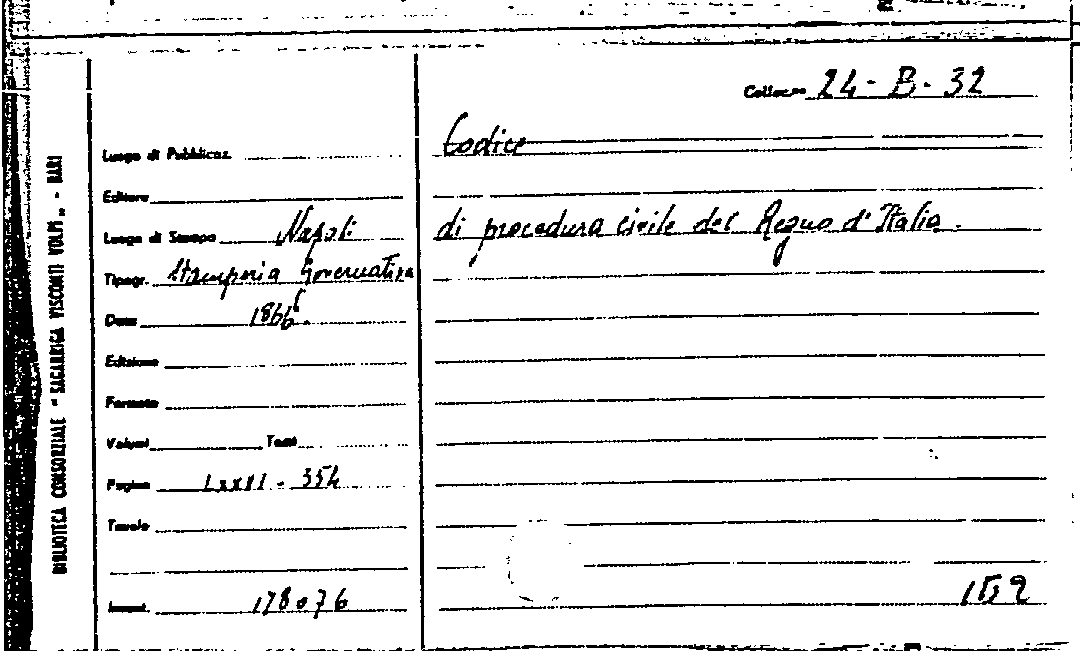 Colloc.ne 24-B-32
Codice
di procedura civile del Regno d'Italia.
Luogo di Pubblicaz.
Editore
Luogo di Stampa Napoli
Tipogr. Stamperia Governativa
Data 1866.
Edizione
Formato
Volumi Tomi
Pagine LXXII - 354
Tavole
Invent. 178076
BIBLIOTECA CONSORZIALE "SAGARRIGA VISCONTI VOLPI" - BARI